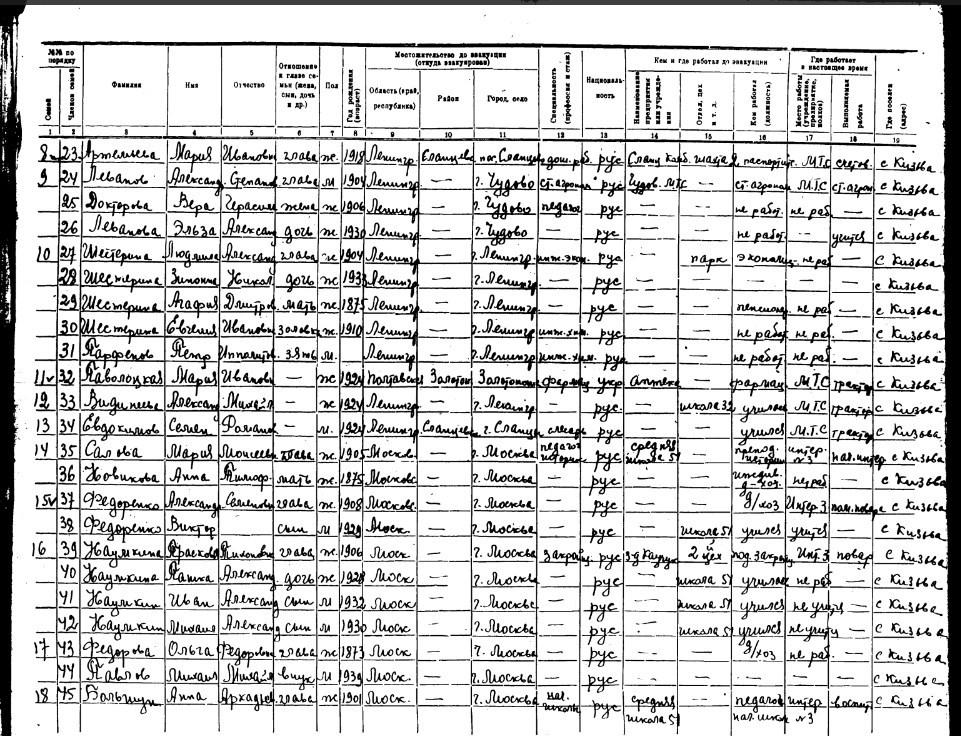 №№ по порядку | Фамилия | Имя | Отчество | Отношение к главе семьи (жена, сын, дочь и др.) | Пол | Год рождения (возраст) | Местожительство до эвакуации (откуда эвакуирован) | Специальность (профессия и стаж) | Национальность | Кем и где работал до эвакуации | Где работает в настоящее время | Где поселен (адрес)
Семей | Членов семей | Область (край, республика) | Район | Город, село | Наименование предприятия или учреждения | Отдел, цех и т. д. | Кем работал (должность) | Место работы (учреждение, предприятие, колхоз) | Выполняемая работа
1 2 3 4 5 6 7 8 9 10 11 12 13 14 15 16 17 18 19
8 23 Артемьева Мария Ивановн глава ж 1918 Ленингр. Сланцевс пос. Сланцы рус М.Т.С с Кизьва
9 24 Леванов Александ Степанов глава м 1904 Ленингр. — г. Чудово ст. агроном рус Чудов. МТС — ст. агроном М.Т.С ст. агрон с Кизьва
25 Докторова Вера Герасим жена ж 1906 Ленингр — г. Чудово педагог рус — не работ. не раб — с Кизьва
26 Леванова Эльза Александ дочь ж 1930 Ленингр. — г. Чудово — рус — не работ. — учится с Кизьва
10 27 Шестерина Людмила Александ глава ж 1904 Ленингр. — г. Ленингр. инж.-экон. рус — парк экономист не раб — с Кизьва
28 Шестерина Никол дочь ж 1933 Ленингр. — г. Ленингр. — рус — — — — с Кизьва
29 Шестерина Агафия Дмитров мать ж 1875 Ленингр. — г. Ленингр. — рус — — пенсионер не раб — с Кизьва
30 Шестерина Евгения Ивановн золовка ж 1910 Ленингр. — г. Ленингр. инж. хим. рус — — не работ не раб. — с Кизьва
31 Парфенов Петр Ипполитов зять м. Ленингр. — г. Ленингр. инж. хим. рус — — не работ не раб. — с Кизьва
11 32 Паволоцкая Мария Ивановн — ж 1924 Полтавска Золотон Золотоноша фармац укр аптека — фармац. М.Т.С тракто с Кизьва
12 33 Александ Михайл — ж 1924 Ленингр. — г. Ленингр. — рус. — школа 32 учился М.Т.С трактор с Кизьва
13 34 Евдокимов Семен Роман — м. 1924 Ленингр. Сланцевс г. Сланцы слесарь рус — — учился М.Т.С трактор с Кизьва
14 35 Мария Моисеевн глава ж 1905 Москов. — г. Москва педагог историк рус средняя школа 51 — препод. истории интер. №3 нач. интер с Кизьва
36 Новикова Анна мать ж. 1875 Москов — г. Москва — рус — — иждив. д-хоз. не раб — с Кизьва
15 37 Федоренко Александ Семенов глава ж 1908 Москов. — г. Москва — рус — — д/хоз Интер 3 пом. повара с Кизьва
38 Федоренко Виктор сын м 1929 Моск. — г. Москва — рус школа 51 учился учится — с Кизьва
16 39 Наумкина Прасков Тихоновн глава ж 1906 Моск — г. Москва рус з-д Каучук 2й цех Инт. 3 повар с Кизьва
40 Наумкина Александ дочь ж 1928 Моск — г. Москва — рус — школа 51 училась не раб — с Кизьва
41 Наумкин Иван Александ сын м 1932 Моск — г. Москва — рус — школа 51 учился не учится — с Кизьва
42 Наумкин Михаил Александ сын м 1930 Моск — г. Москва — рус — школа 51 учился не учит — с Кизьва
17 43 Федорова Ольга Федоровн глава ж 1873 Моск — г. Москва — рус — — д/хоз не раб. — с Кизьва
44 Павлов Михаил Михайл внук м 1939 Моск. — г. Москва — рус — — — — — с Кизьва
18 45 Анна Аркадьев глава ж 1901 Моск. — г. Москва нач. школы рус средняя школа 51 — педагог нач. школ интер №3 воспит с Кизьва